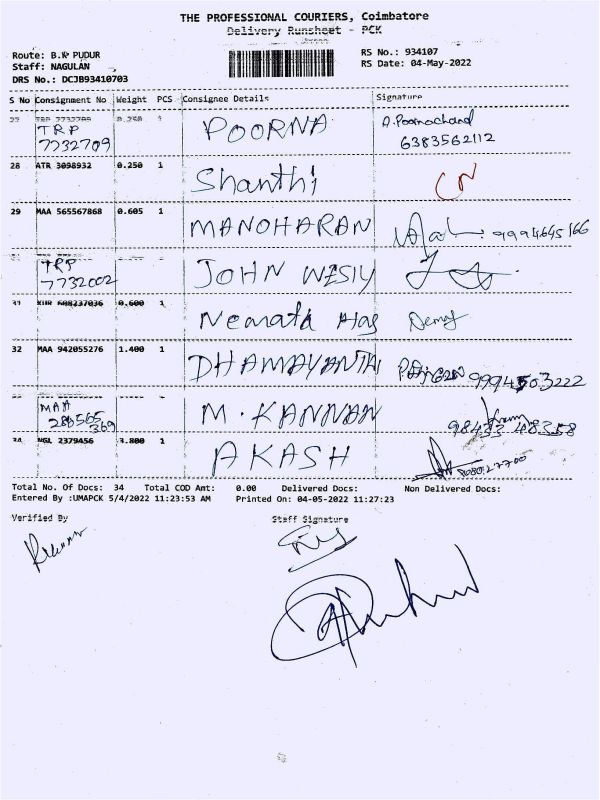 THE PROFESSIONAL COURIERS, Coimbatore
Delivery Runsheet - PCK
Route: B.K PUDUR
RS No.: 934107
Staff: NAGULAN
RS Date: 04-May-2022
DRS No.: DCJB93410703
S No Consignment No Weight PCS Consignee Details Signature
27 TRP 7732709 0.250 1
TRP 7732709 POORNA A.Poornachand 6383562112
28 ATR 3098932 0.250 1 Shanthi
29 MAA 565567868 0.605 1 MANOHARAN 9994645166
TRP 7732002 JOHN WESIY
31 0.600 1 Nemata
32 MAA 942055276 1.400 1 DHAMAYANTHI 9994503222
MAA 288565 369 M. KANNAN 98433 48358
34 NGL 2379456 3.800 1 AKASH
Total No. Of Docs: 34 Total COD Amt: 0.00 Delivered Docs: Non Delivered Docs:
Entered By :UMAPCK 5/4/2022 11:23:53 AM Printed On: 04-05-2022 11:27:23
Verified By Staff Signature